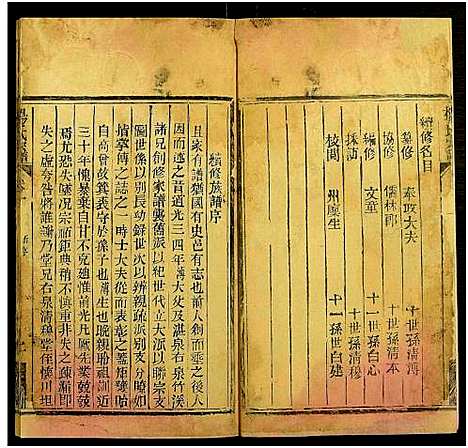 續修名目
纂修 奉政大夫 十世孫清溥
協修 儒林郎 十世孫清本
編修 文童 十一孫世白心
採訪 十世孫清穆
校閱 州廩生 十一孫世白建
續修族譜序
且家有譜猶國有史邑有志也前人創而垂之後人
因而述之昔道光三四年溝大父及湛泉右泉竹溪
創修家譜襲舊派以紀世代立大派以聯宗支
圖世係以別長幼錄世次以辨親疏派別支分瞭如
指掌傳之誌之一時士大夫從而表彰之蓋矩矱貽
自高曾故箕裘守於孫子也溝生也晚親聆祖訓近
三十年愧暴棄自甘不克遠惟前光凡厥生業兢兢
焉尤恐失墜况宗祖鉅典稍不慎重非失之疎漏即
失之虛夸咎將誰謝乃堂兄右泉清穆堂侄懷川坦